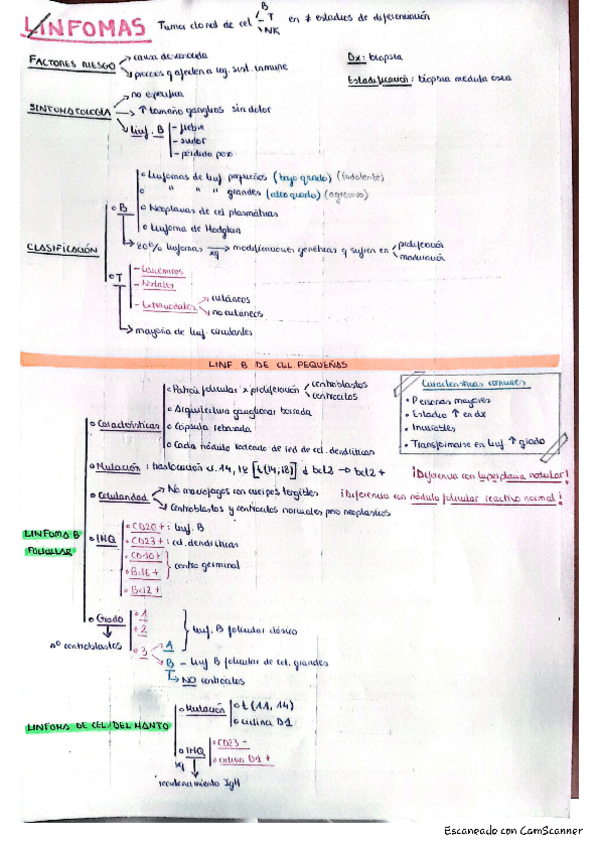 LINFOMAS Tumor clonal de cel B T NK en ≠ estadios de diferenciación
FACTORES RIESGO
causa desconocida
procesos q afecten a reg. sist. inmune
Dx: biopsia
Estadificación: biopsia médula ósea
SINTOMATOLOGÍA
no específica
↑ tamaño ganglios sin dolor
Linf. B
- fiebre
- sudor
- pérdida peso
CLASIFICACIÓN
B
Linfomas de linf pequeños (bajo grado) (indolente)
" " " grandes (alto grado) (agresivo)
Neoplasias de cel plasmáticas
Linfoma de Hodgkin
80% linfomas xq modificaciones genéticas q sufren en proliferación maduración
T
- Leucémicos
- Nodales
- Extranodales
cutáneos
no cutáneos
mayoría de linf. circulantes
LINF B DE CEL PEQUEÑAS
Características comunes
• Personas mayores
• Estadio ↑ en dx
• Incurables
• Transformarse en linf ↑ grado
LINFOMA B FOLICULAR
Características
Patrón folicular x proliferación centroblastos centrocitos
Arquitectura ganglionar borrada
Cápsula rebasada
Cada nódulo rodeado de red de cel. dendríticas
Mutación: traslocación 14, 18 [t(14,18)] bcl2 → bcl2+
¡Diferencia con hiperplasia nodular!
Celularidad
No macrófagos con cuerpos tingibles
¡Diferencia con nódulo folicular reactivo normal!
Centroblastos y centrocitos normales pero neoplásicos
IHQ
CD20+: linf. B
CD23+: cel. dendríticas
CD10+
Bcl6+
centro germinal
Bcl2+
Grado
nº centroblastos
1
2
3
Linf. B folicular clásico
A
B - Linf B folicular de cel. grandes
NO centrocitos
LINFOMA DE CEL/DEL MANTO
Mutación
t (11, 14)
ciclina D1
IHQ
CD23 -
ciclina D1 +
xq
reordenamiento IgH
Escaneado con CamScanner